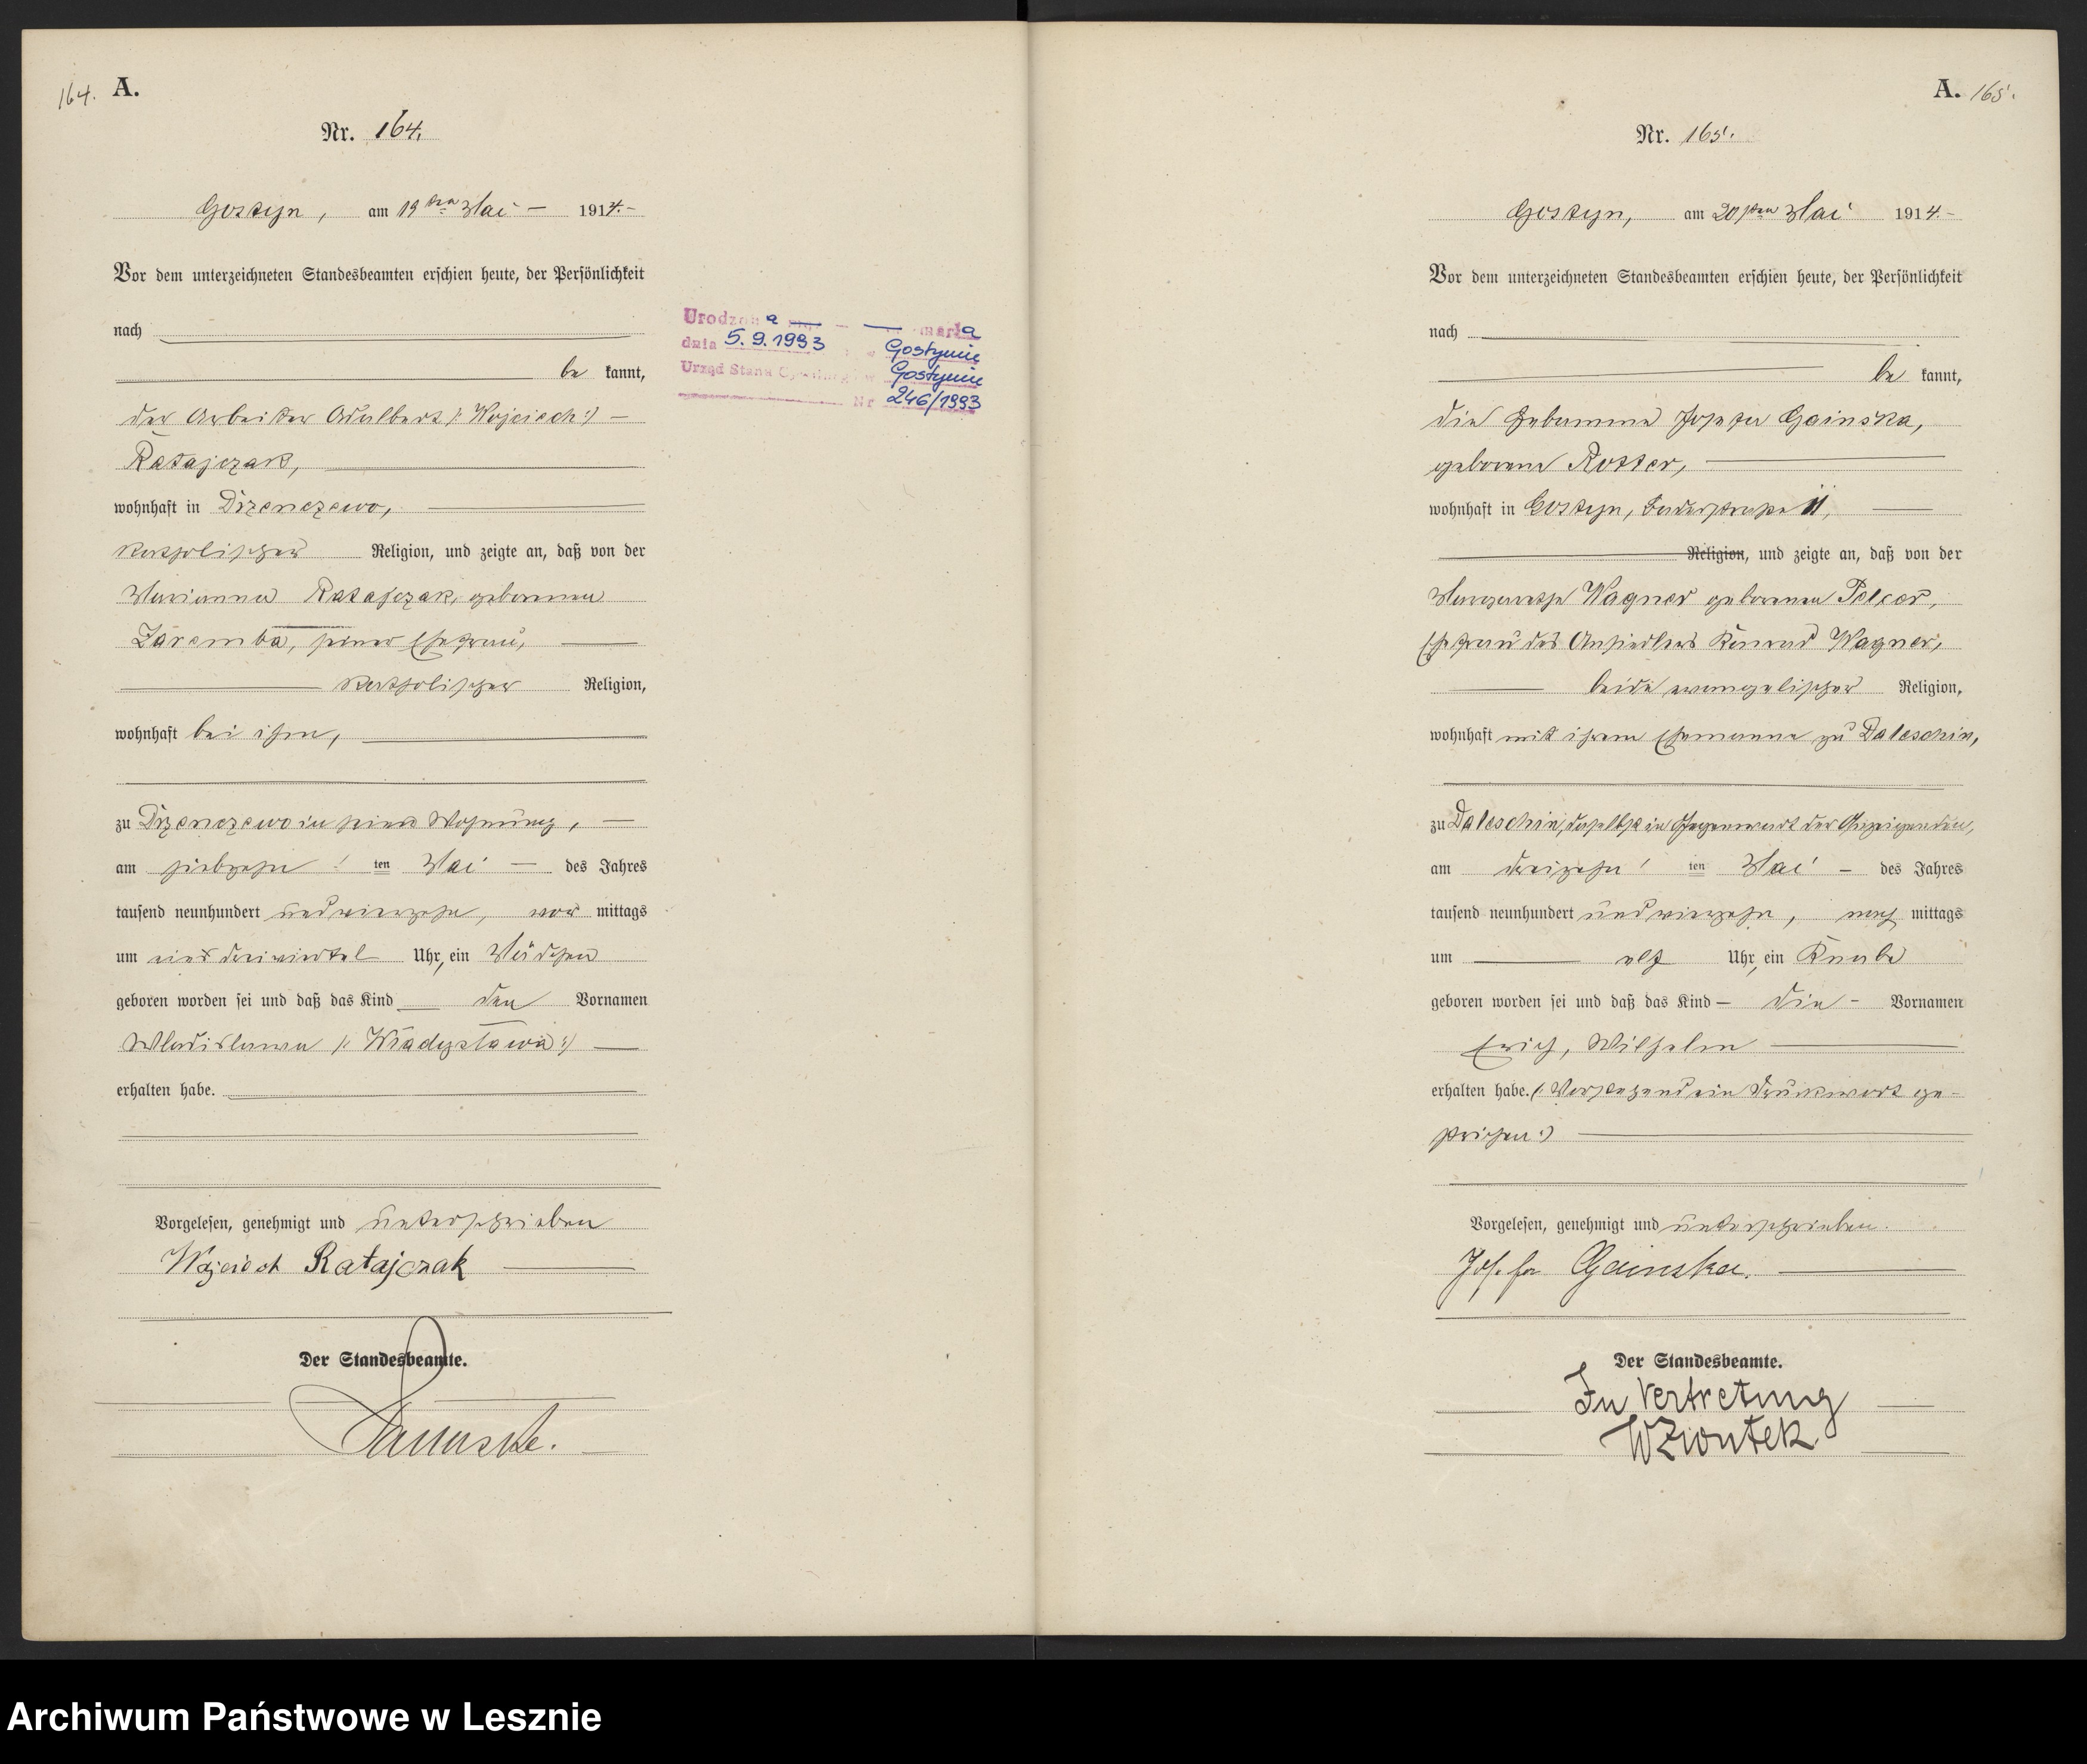 164. A.
Nr. 164.
Gostyn, am 19ten Mai 1914.
Vor dem unterzeichneten Standesbeamten erschien heute, der Persönlichkeit
nach
be kannt,
der Arbeiter Adalbert /: Wojciech :/
Ratajczak,
wohnhaft in Drzenczewo,
katholischer Religion, und zeigte an, daß von der
Marianna Ratajczak, geborenen
Zaremba, seiner Ehefrau,
katholischer Religion,
wohnhaft bei ihm,
zu Drzenczewo in seiner Wohnung,
am siebzehn ten Mai des Jahres
tausend neunhundert und vierzehn, vor mittags
um ein dreiviertel Uhr, ein Mädchen
geboren worden sei und daß das Kind den Vornamen
Wladislawa /: Władysława :/
erhalten habe.
Vorgelesen, genehmigt und unterschrieben
Wojciech Ratajczak
Der Standesbeamte.
Urodzona
dnia 5.9.1993 Gostyniu
Urząd Stanu Cywilnego w Gostyniu
Nr 246/1993
A. 165.
Nr. 165.
Gostyn, am 20sten Mai 1914.
Vor dem unterzeichneten Standesbeamten erschien heute, der Persönlichkeit
nach
be kannt,
die Hebamme Josefa Gainska,
geborene Rotter,
wohnhaft in Gostyn, 11,
Religion, und zeigte an, daß von der
Margarethe Wagner geborenen Pelcer,
Ehefrau des Ansiedlers Konrad Wagner,
beide evangelischer Religion,
wohnhaft mit ihrem Ehemanne zu Daleschin,
zu Daleschin, daselbst in Gegenwart der Anzeigenden,
am dreizehn ten Mai des Jahres
tausend neunhundert und vierzehn, nach mittags
um elf Uhr, ein Knabe
geboren worden sei und daß das Kind die Vornamen
Erich, Wilhelm
erhalten habe. /: Vorstehend ein Druckwort ge-
strichen :/
Vorgelesen, genehmigt und unterschrieben.
Josefa Gainska.
Der Standesbeamte.
In Vertretung
WZiontek
Archiwum Państwowe w Lesznie